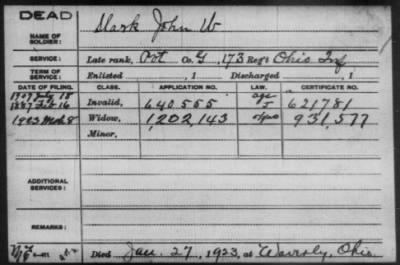 DEAD
NAME OF SOLDIER: Mark John W
SERVICE: Late rank, Pvt Co. G, 173 Reg't Ohio Inf
TERM OF SERVICE: Enlisted , 1 Discharged , 1
DATE OF FILING. CLASS. APPLICATION NO. LAW. CERTIFICATE NO.
1907 July 15 age
1887 Feb 16 Invalid, 640,555 J 621781
1923 Mch 8 Widow, 1,202,143 931,577
Minor,
ADDITIONAL SERVICES:
REMARKS:
Died Jan. 27, 1923, at Waverly, Ohio